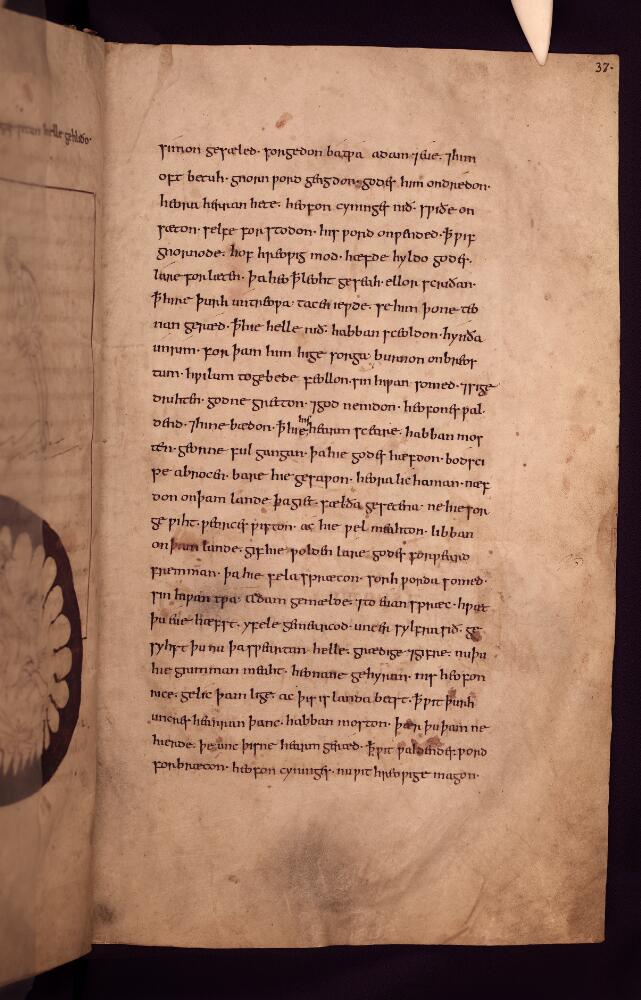 simon gesæled. sorgedon batƿa adam ⁊eue. ⁊him
oft betuh. gnorn ƿord gengdon. godes him ondredon.
heora herran hete. heofon cyninges nið. sƿiðe on
sæton. selfe for stodon. his ƿord onƿended. ꝥ ƿif
gnornode. hof hreoƿig mod. hæfde hyldo godes.
lare forlæten. þaheo ꝥleoht geseah. ellor scriðan.
ꝥhire þurh untreoƿa tacen iepde. sehim þone teo
nan geræd. ꝥhie helle nið. habban sceoldon. hynða
unrim. for þam him hige sorga. burnon onbreos
tum. hƿilum togebede feollon. sin hiƿan somed. ⁊sige
drihten. godne gretton. ⁊god nemdon. heofones ƿal.
dend. ⁊hine bædon. ꝥhie his hearm sceare. habban mos
ten. georne ful gangan. þahie godes hæfdon. bodsci
pe abrocen. bare hie gesaƿon. heora lichaman. næf
don onþam lande þagiet. sælða gesetena. ne hie sor
ge ƿiht. ƿeorces ƿiston. ac hie ƿel meahton. libban
on þam lande. gifhie ƿolden lare godes forƿeard
fremman. þa hie fela spræcon. sorh ƿorda somed.
sin hiƿan tƿa. adam gemælde. ⁊to euan spræc. hƿæt
þu eue hæfst. yfele gemearcod. uncer sylfra sið. ge
syhst þu nu þa sƿeartan helle. grædige ⁊gifre. nuþu
hie grimman meaht. heonane gehyran. nis heofon
rice. gelic þam lige. ac þis is landa betst. ꝥƿit þurh
uncres hearran þanc. habban moston. þær þu þam ne
hierde. þe unc þisne hearm geræd. ꝥƿit ƿaldendes ƿord
forbræcon. heofon cyninges. nu ƿit hreoƿige magon.
37.
helle gehlido.